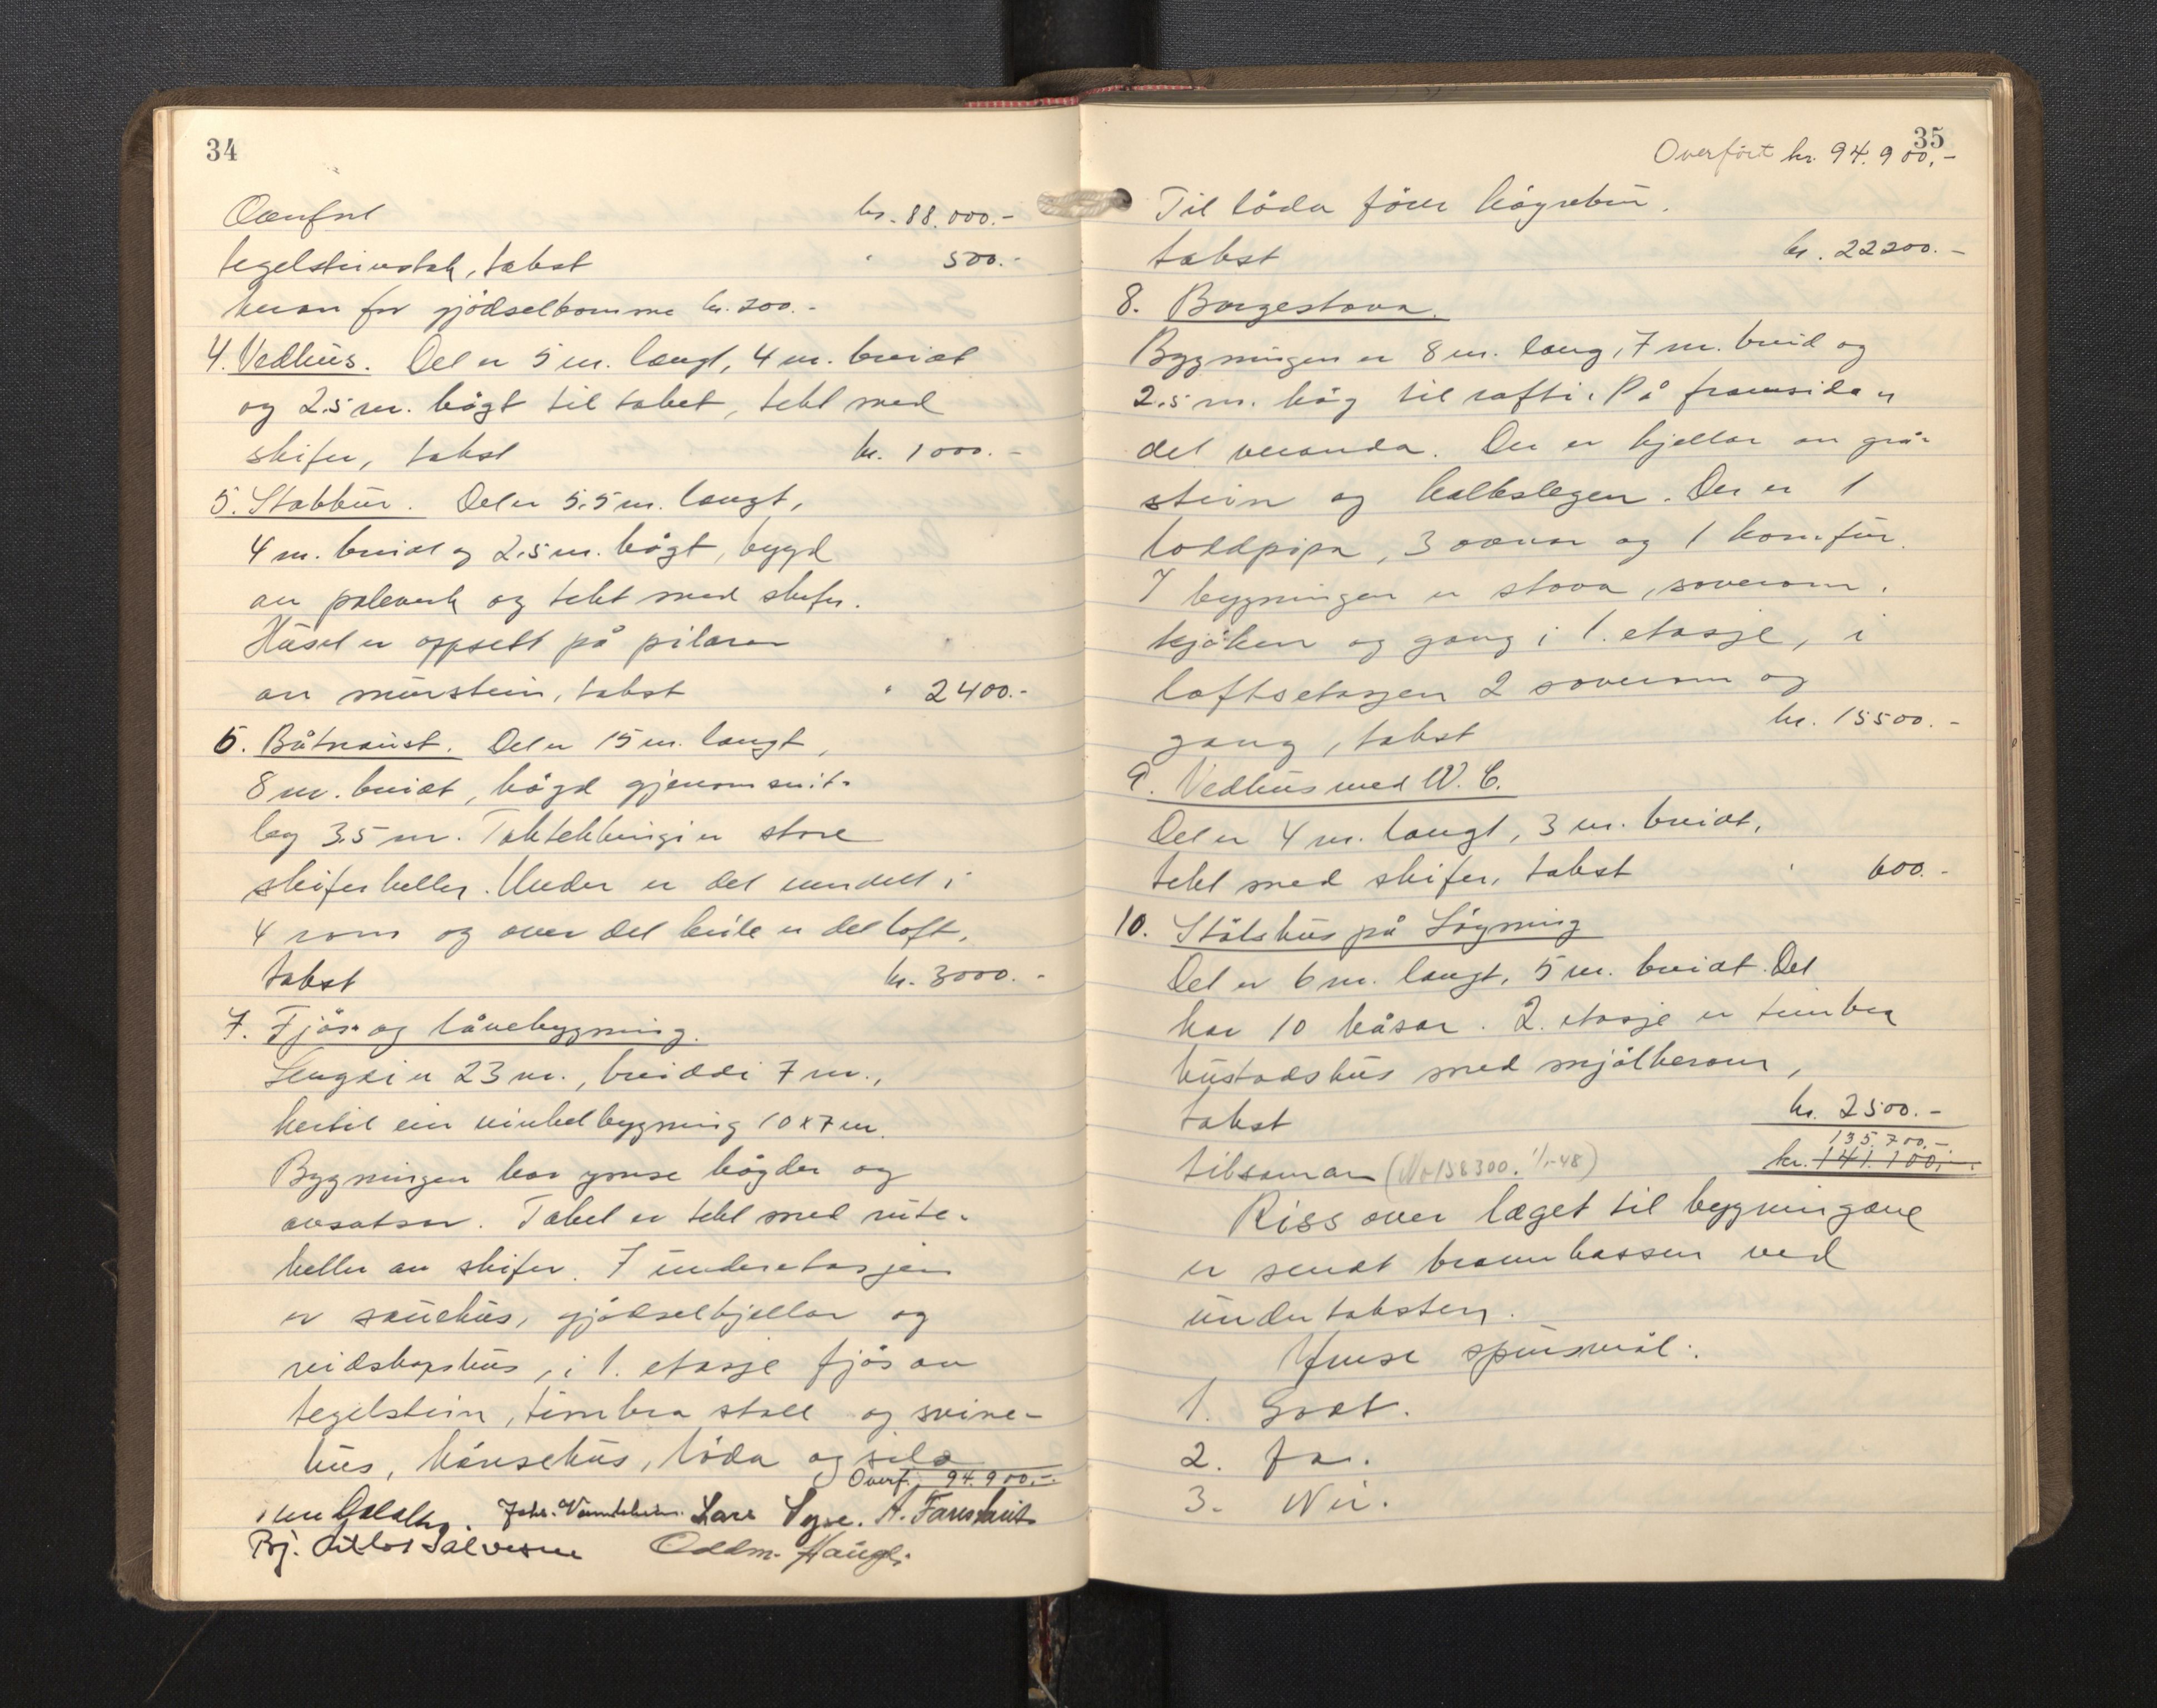 34
Overført kr. 88.000.-
tegelsteinstak, takst " 500.-
herav for gjödselkomme kr. 200.-
4. Vedhus. Det er 5 m. langt, 4 m. breidt
og 2.5 m. högt til taket, tekt med
skifer, takst kr. 1000.-
5. Stabbur. Det er 5.5 m. langt,
4 m. breidt og 2.5 m. högt, bygd
av paleverk og tekt med skifer.
Huset er oppsett på pilarar
av murstein, takst " 2400.-
6. Båtnaust. Det er 15 m. langt,
8 m. breidt, högd gjenomsnit-
leg 3.5 m. Taktekkingi er store
skiferheller. Under er det inndelt i
4 rom og over det heile er det loft,
takst kr. 3000.-
7. Fjös- og låvebygning.
Lengdi er 23 m., breiddi 7 m.,
hertil ein vinkelbygning 10 x 7 m.
Bygningen har ymse högder og
avsatsar. Taket er tekt med rute-
heller av skifer. I underetasjen
er sauehus, gjödselkjellar og
reidskapshus, i 1. etasje fjös av
tegelstein, timbra stall og svine-
hus, hönsehus, löda og silo
Overf. 94.900.-
Lars Syse. A.
Bj. Salvesen Oddm. Haugli
35
Overfört kr. 94.900,-
Til löda förer högrebru.
takst kr. 22200.-
8. Borgestova.
Bygningen er 8 m. lang, 7 m. breid og
2.5 m. hög til rafti. På framsida er
det veranda. Der er kjellar av grå-
stein og kalkslegen. Der er 1
loddpipa, 3 omnar og 1 komfur.
I bygningen er stova, soverom,
kjöken og gang i 1. etasje, i
loftsetasjen 2 soverom og
gang, takst kr. 15500.-
9. Vedhus med W.C.
Det er 4 m. langt, 3 m. breidt,
tekt med skifer, takst " 600.-
10. Stölshus på Lögning
Det er 6 m. langt, 5 m. breidt. Det
har 10 båsar. 2. etasje er timbra
bustadshus med mjölkerom,
takst kr. 2500.-
135.700,-
tilsaman (Nr 158300. 1/1-48) kr. 141.100,-
Riss over læget til bygningane
er sendt brannkassen ved
undertaksten.
Ymse spursmål:
1. Godt.
2. Ja.
3. Nei.